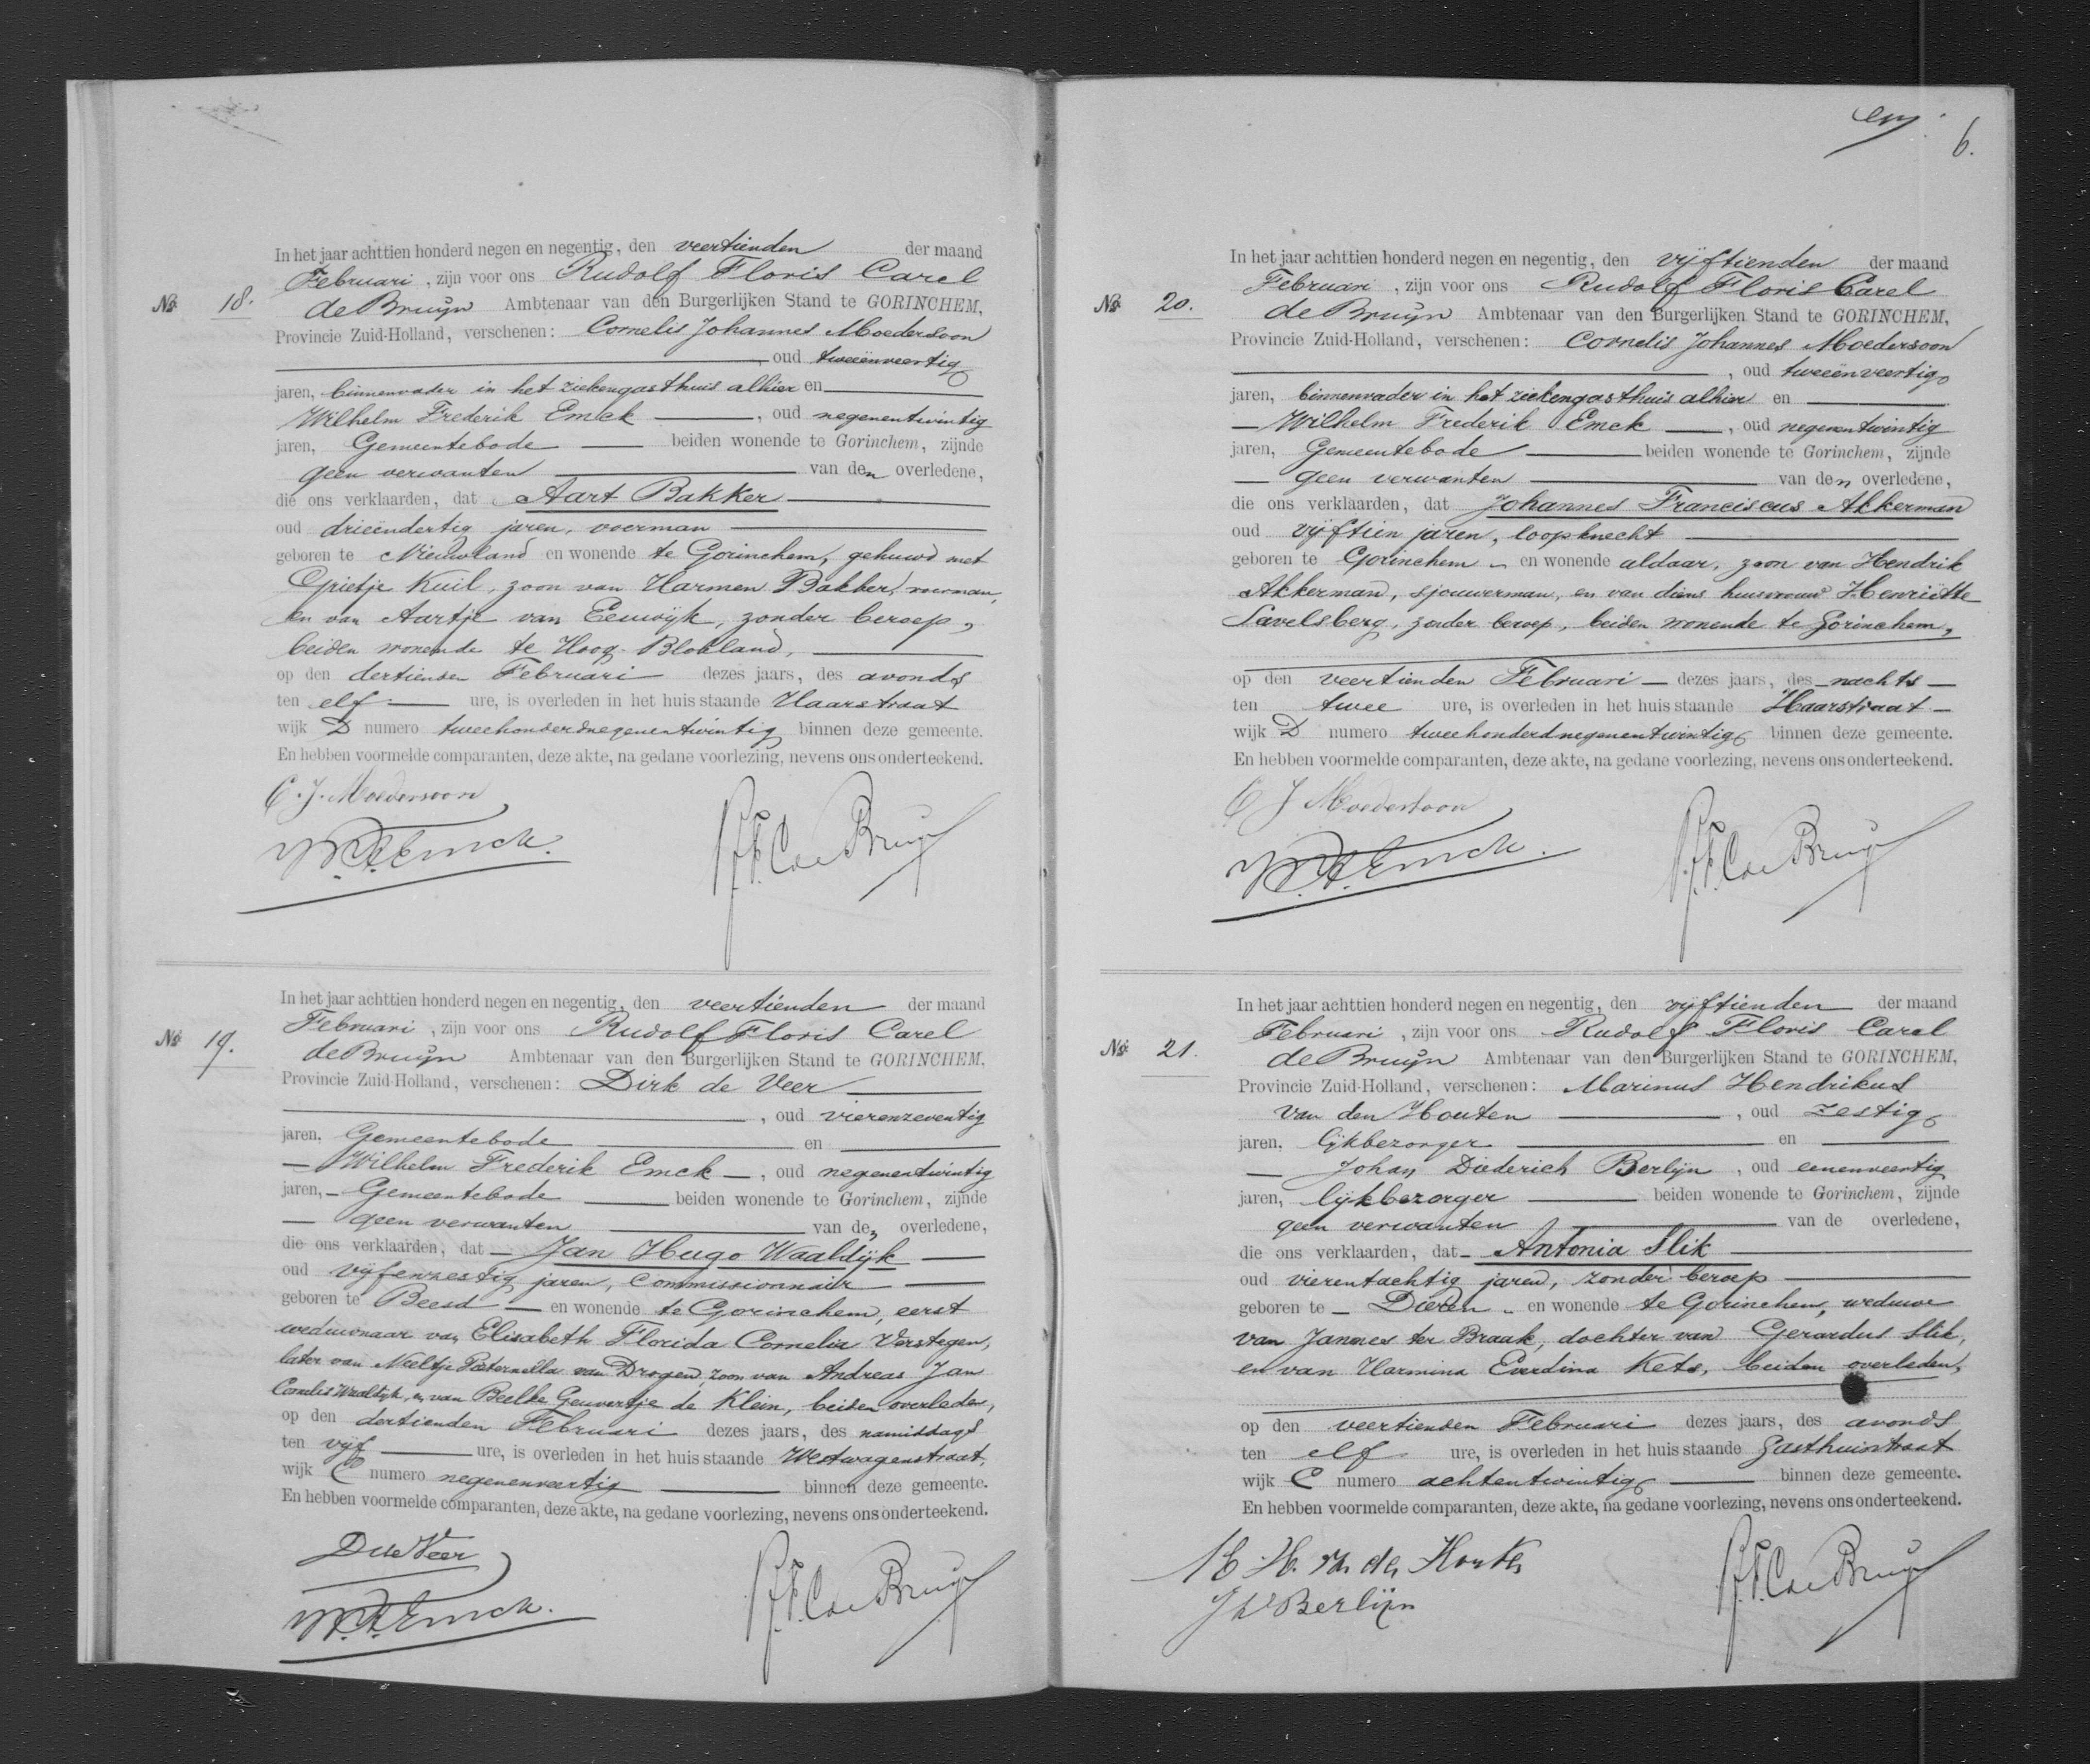 In het jaar achttien honderd negen en negentig, den veertienden der maand
Februari, zijn voor ons Rudolf Floris Carel
No 18. de Bruijn Ambtenaar van den Burgerlijken Stand te GORINCHEM,
Provincie Zuid-Holland, verschenen: Cornelis Johannes Moedersoon
, oud tweeënveertig
jaren, binnenvader in het ziekengasthuis alhier en
Wilhelm Frederik Emck , oud negenentwintig
jaren, Gemeentebode beiden wonende te Gorinchem, zijnde
geen verwanten van den overledene,
die ons verklaarden, dat Aart Bakker
oud drieëndertig jaren, voerman
geboren te Nieuwland en wonende te Gorinchem, gehuwd met
Grietje Kuil, zoon van Harmen Bakker, voerman,
en van Aartje van Eeuwijk, zonder beroep,
beiden wonende te Hoog-Blokland,
op den dertienden Februari dezes jaars, des avonds
ten elf ure, is overleden in het huis staande Haarstraat
wijk D numero tweehonderdnegenentwintig binnen deze gemeente.
En hebben voormelde comparanten, deze akte, na gedane voorlezing, nevens ons onderteekend.
C. J. Moedersoon
W. F. Emck. R. F. C. de Bruijn
In het jaar achttien honderd negen en negentig, den veertienden der maand
Februari, zijn voor ons Rudolf Floris Carel
No 19. de Bruijn Ambtenaar van den Burgerlijken Stand te GORINCHEM,
Provincie Zuid-Holland, verschenen: Dirk de Veer
, oud vierenzeventig
jaren, Gemeentebode en
Wilhelm Frederik Emck , oud negenentwintig
jaren, Gemeentebode beiden wonende te Gorinchem, zijnde
geen verwanten van den overledene,
die ons verklaarden, dat Jan Hugo Waaldijk
oud vijfenzestig jaren, commissionnair
geboren te Beesd en wonende te Gorinchem, eerst
weduwnaar van Elisabeth Florida Cornelia Verstegen,
later van Neeltje Pieternella van Drogen, zoon van Andreas Jan
Cornelis Waaldijk, en van Beelke Geuvertje de Klein, beiden overleden,
op den dertienden Februari dezes jaars, des namiddags
ten vijf ure, is overleden in het huis staande Westwagenstraat,
wijk C numero negenenveertig binnen deze gemeente.
En hebben voormelde comparanten, deze akte, na gedane voorlezing, nevens ons onderteekend.
D de Veer
W. F. Emck. R. F. C. de Bruijn
6.
In het jaar achttien honderd negen en negentig, den vijftienden der maand
Februari, zijn voor ons Rudolf Floris Carel
No 20. de Bruijn Ambtenaar van den Burgerlijken Stand te GORINCHEM,
Provincie Zuid-Holland, verschenen: Cornelis Johannes Moedersoon
, oud tweeënveertig
jaren, binnenvader in het ziekengasthuis alhier en
Wilhelm Frederik Emck , oud negenentwintig
jaren, Gemeentebode beiden wonende te Gorinchem, zijnde
geen verwanten van den overledene,
die ons verklaarden, dat Johannes Franciscus Akkerman
oud vijftien jaren, loopknecht
geboren te Gorinchem en wonende aldaar, zoon van Hendrik
Akkerman, sjouwerman, en van diens huisvrouw Henriëtte
Savelsberg, zonder beroep, beiden wonende te Gorinchem,
op den veertienden Februari dezes jaars, des nachts
ten twee ure, is overleden in het huis staande Haarstraat
wijk D numero tweehonderdnegenentwintig binnen deze gemeente.
En hebben voormelde comparanten, deze akte, na gedane voorlezing, nevens ons onderteekend.
C J Moedersoon
W. F. Emck. R. F. C. de Bruijn
In het jaar achttien honderd negen en negentig, den vijftienden der maand
Februari, zijn voor ons Rudolf Floris Carel
No 21. de Bruijn Ambtenaar van den Burgerlijken Stand te GORINCHEM,
Provincie Zuid-Holland, verschenen: Marinus Hendrikus
van den Houten , oud zestig
jaren, lijkbezorger en
Johan Diederich Berlijn , oud eenenveertig
jaren, lijkbezorger beiden wonende te Gorinchem, zijnde
geen verwanten van de overledene,
die ons verklaarden, dat Antonia Slik
oud vierentachtig jaren, zonder beroep
geboren te Dieren en wonende te Gorinchem, weduwe
van Jannes ter Braak, dochter van Gerardus Slik,
en van Harmina Everdina Kets, beiden overleden,
op den veertienden Februari dezes jaars, des avonds
ten elf ure, is overleden in het huis staande Gasthuisstraat
wijk C numero achtentwintig binnen deze gemeente.
En hebben voormelde comparanten, deze akte, na gedane voorlezing, nevens ons onderteekend.
M. H. v. den Houten
J D Berlijn R. F. C. de Bruijn